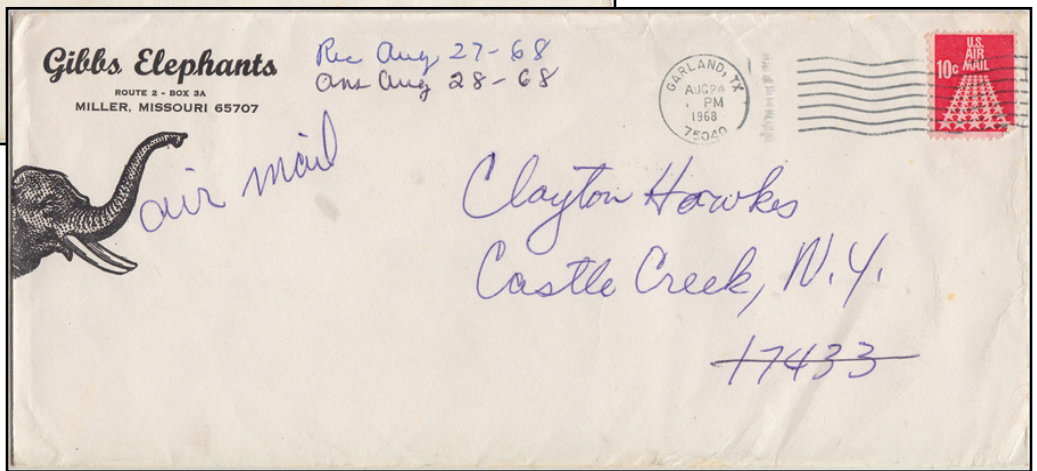 Gibbs Elephants
ROUTE 2 - BOX 3A
MILLER, MISSOURI 65707
Rec Aug 27-68
ans Aug 28-68
GARLAND, TX
AUG 24
PM
1968
75040
U.S.
AIR
MAIL
10c
air mail
Clayton Hawkes
Castle Creek, N.Y.
17433